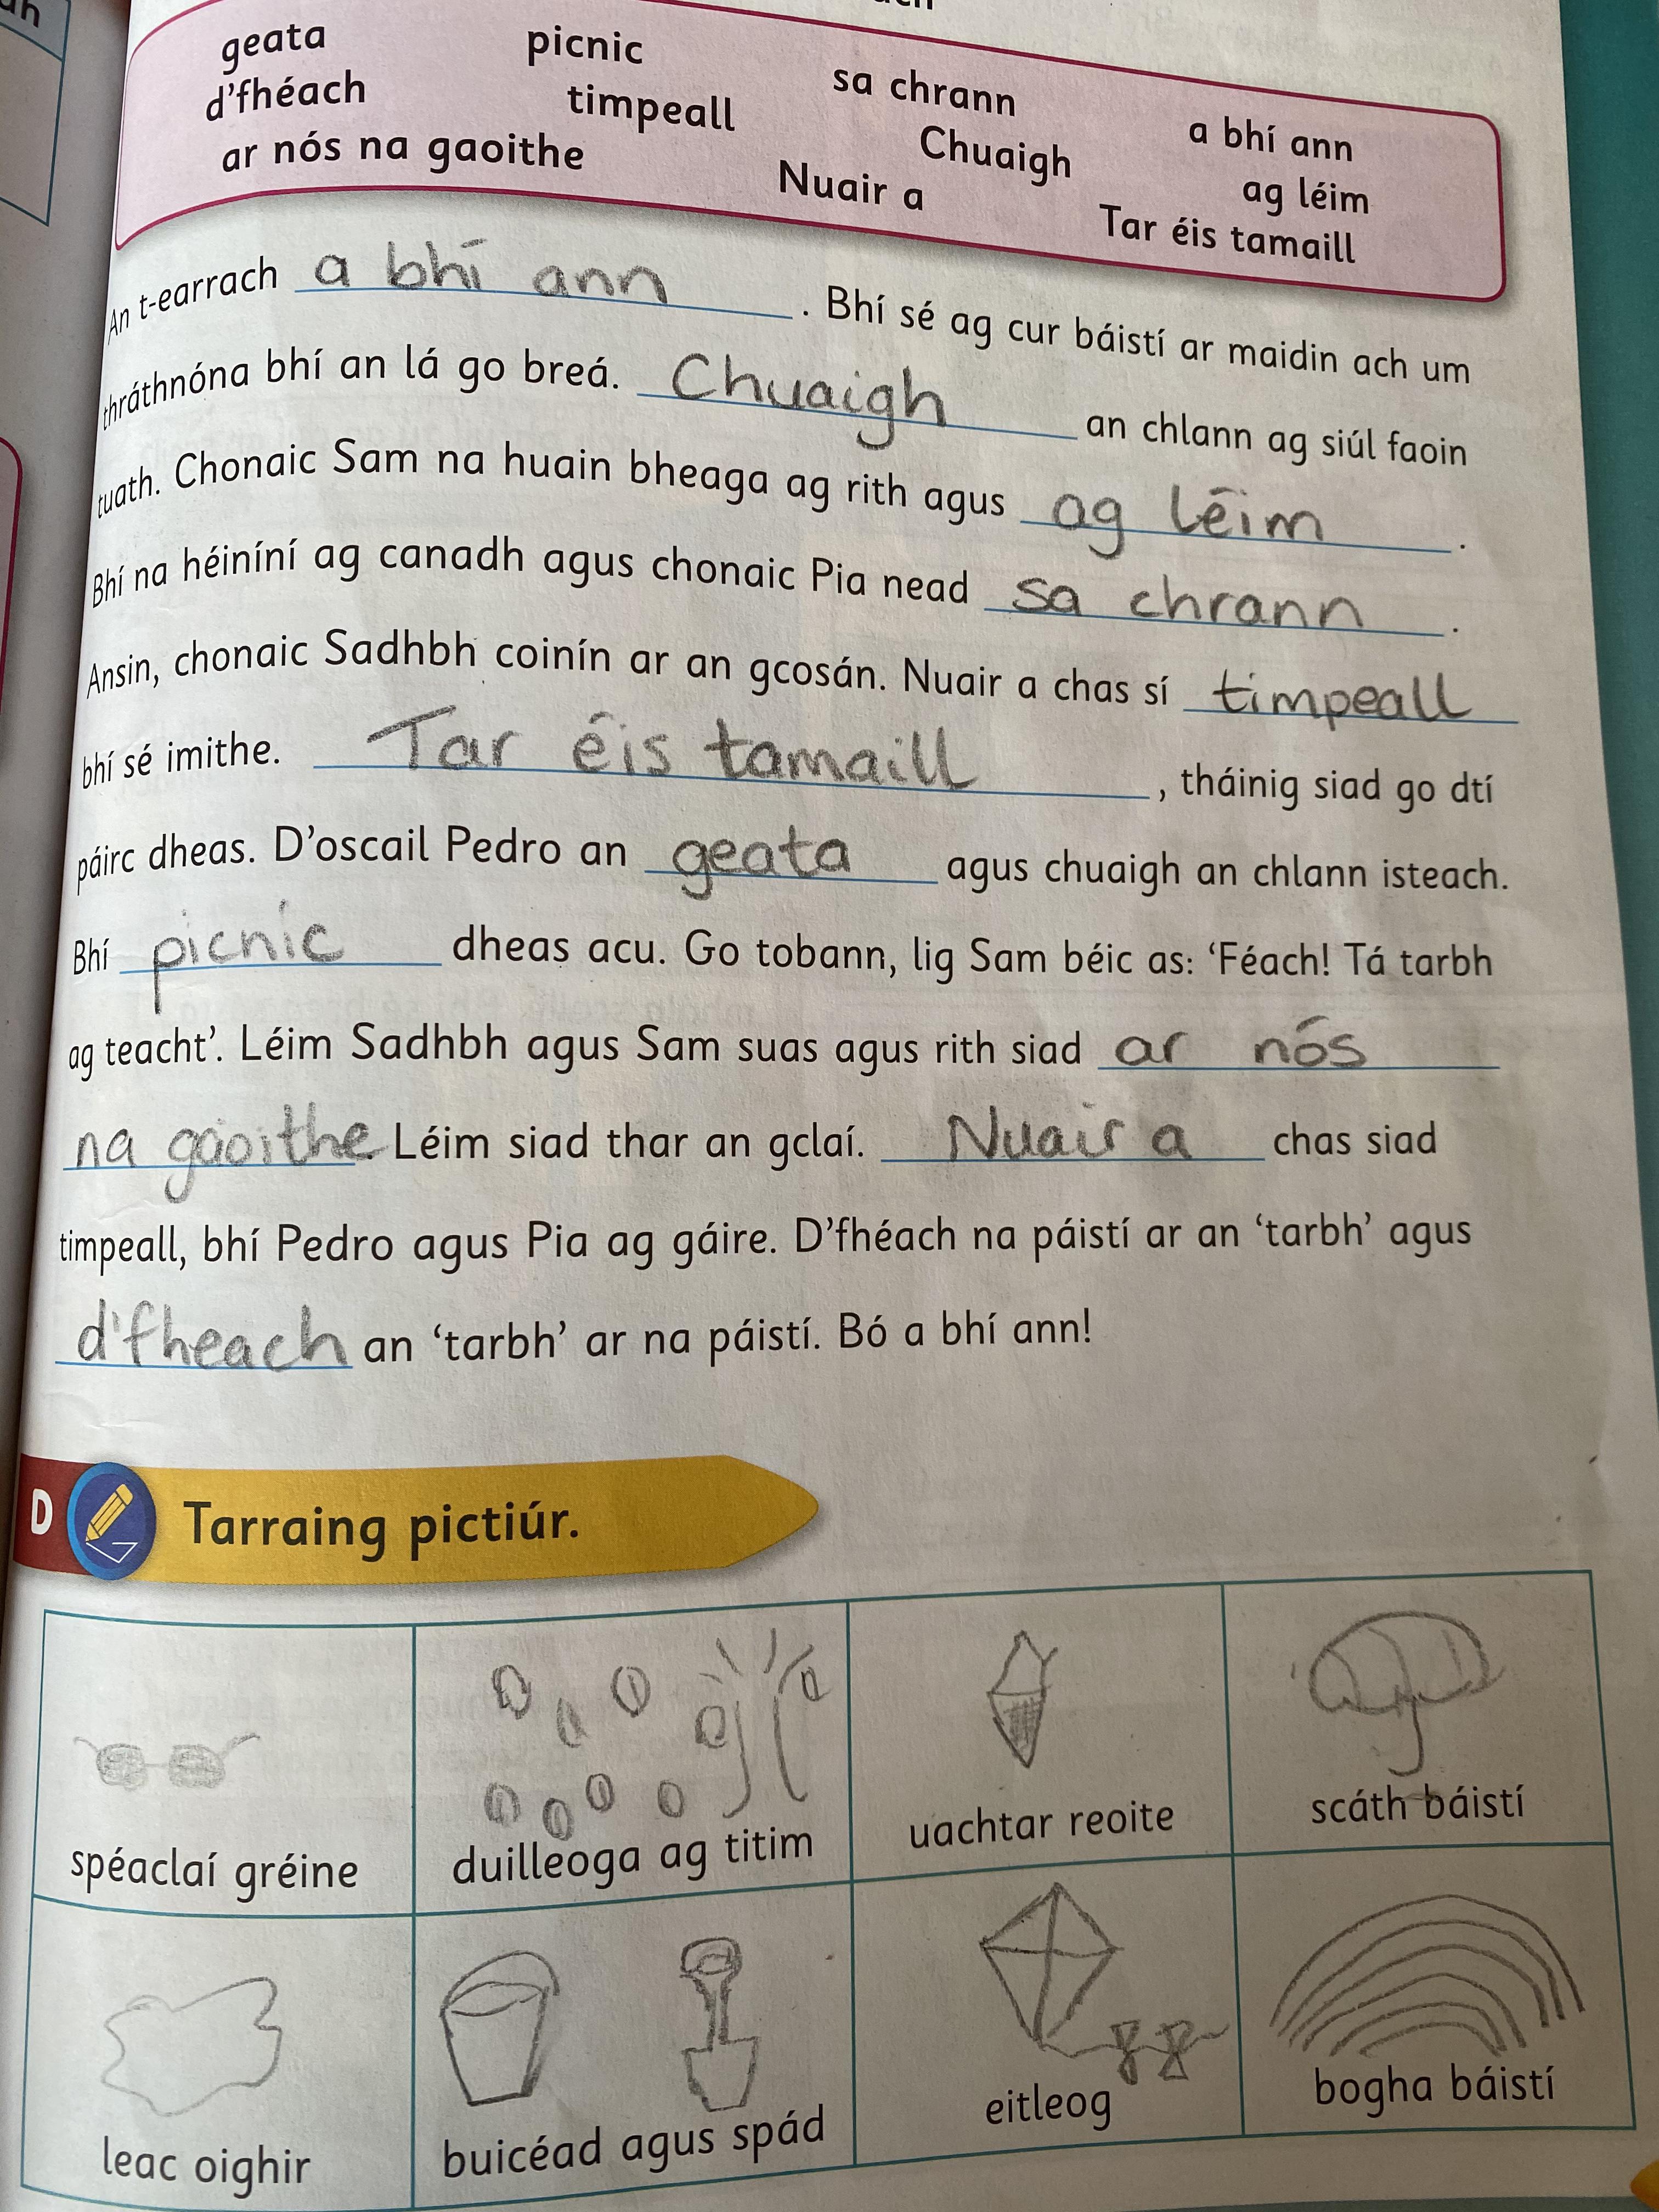 geata picnic sa chrann a bhí ann
d'fhéach timpeall Chuaigh ag léim
ar nós na gaoithe Nuair a Tar éis tamaill
An t-earrach a bhí ann . Bhí sé ag cur báistí ar maidin ach um
thráthnóna bhí an lá go breá. Chuaigh an chlann ag siúl faoin
tuath. Chonaic Sam na huain bheaga ag rith agus ag léim .
Bhí na héiníní ag canadh agus chonaic Pia nead sa chrann .
Ansin, chonaic Sadhbh coinín ar an gcosán. Nuair a chas sí timpeall
bhí sé imithe. Tar éis tamaill , tháinig siad go dtí
páirc dheas. D'oscail Pedro an geata agus chuaigh an chlann isteach.
Bhí picnic dheas acu. Go tobann, lig Sam béic as: 'Féach! Tá tarbh
ag teacht'. Léim Sadhbh agus Sam suas agus rith siad ar nós
na gaoithe. Léim siad thar an gclaí. Nuair a chas siad
timpeall, bhí Pedro agus Pia ag gáire. D'fhéach na páistí ar an 'tarbh' agus
d'fheach an 'tarbh' ar na páistí. Bó a bhí ann!
D Tarraing pictiúr.
spéaclaí gréine
duilleoga ag titim
uachtar reoite
scáth báistí
leac oighir
buicéad agus spád
eitleog
bogha báistí